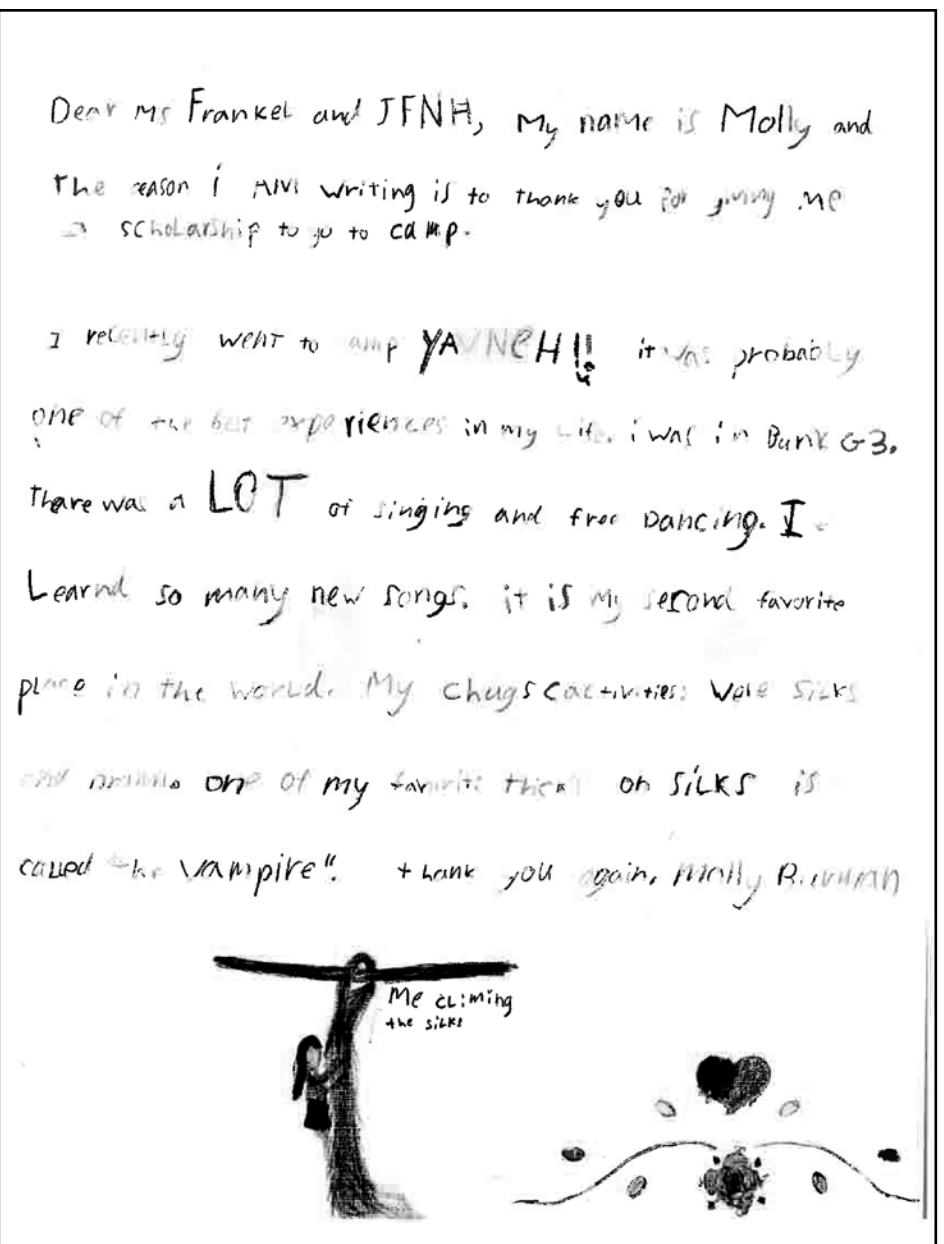 Dear Ms Frankel and JFNH, My name is Molly and
The reason i AM writing is to thank you for giving me
a scholarship to go to camp.
I recently went to camp YAVNEH!! it was probably
one of the best experiences in my Life. i was in Bunk G3.
Thare was a LOT of singing and free Dancing. I
Learnd so many new songs. it is my second favorite
place in the world. My Chugs (activities) were Silks
and one of my favorite on SiLKS is
called "the vampire". thank you again, Molly
Me cLiming
the siLks